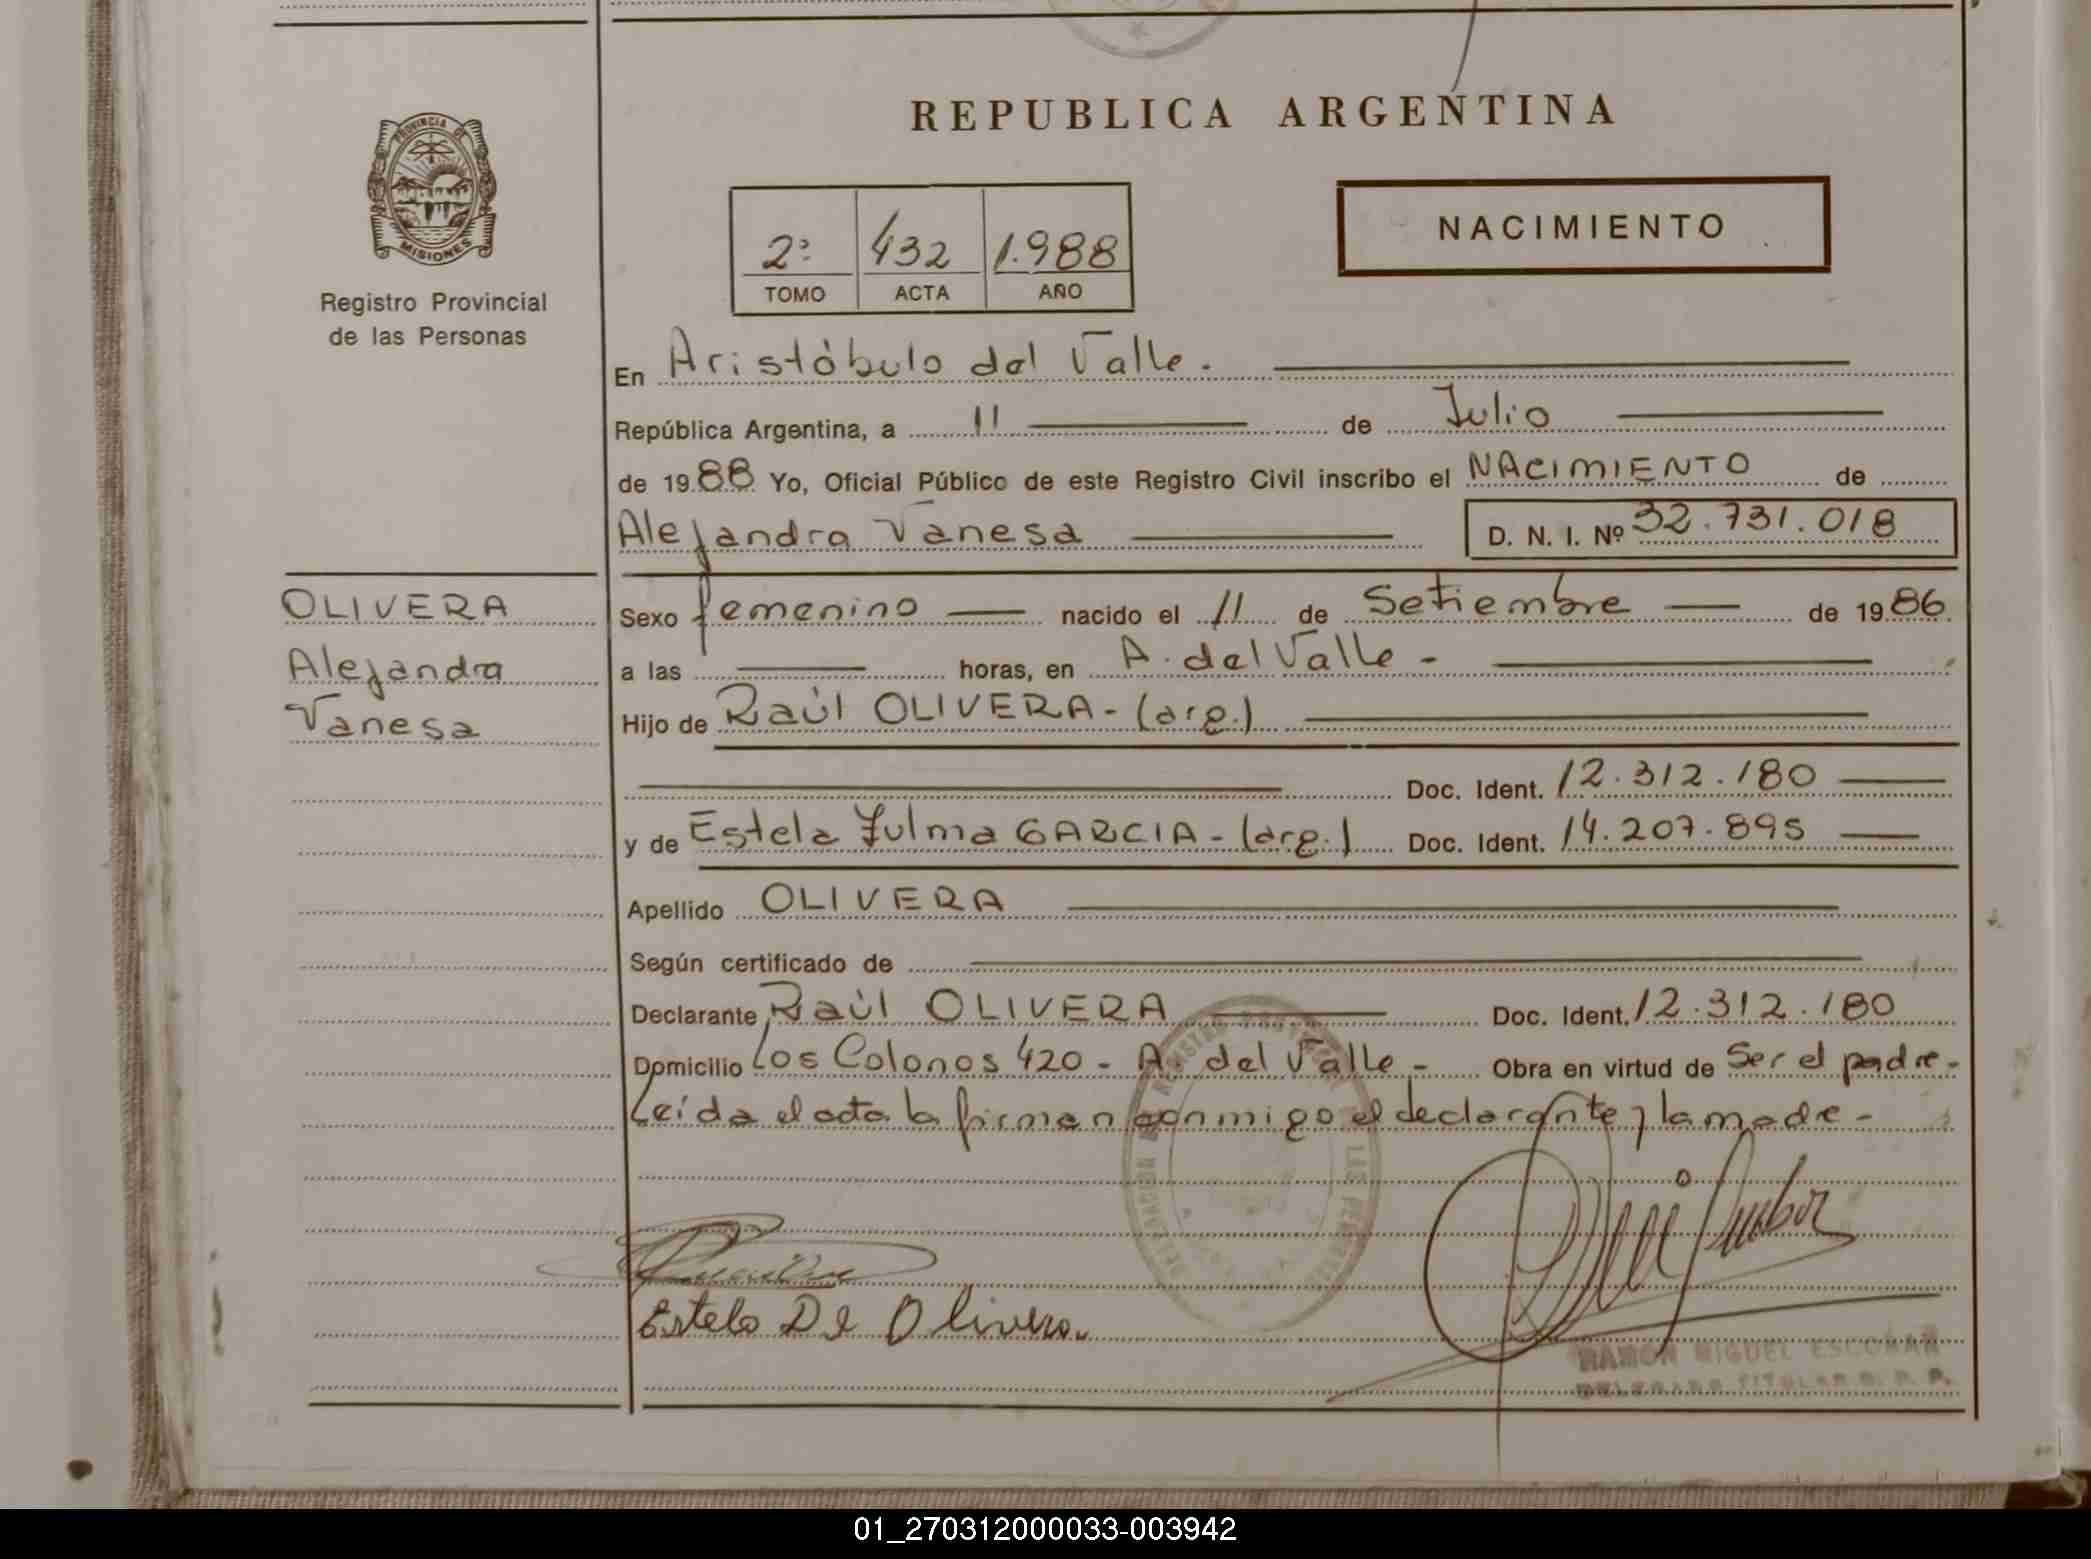 REPUBLICA ARGENTINA
PROVINCIA DE
MISIONES
Registro Provincial
de las Personas
2º 432 1.988
TOMO ACTA AÑO
NACIMIENTO
En Aristóbulo del Valle.
República Argentina, a 11 de Julio
de 1988 Yo, Oficial Público de este Registro Civil inscribo el NACIMIENTO de
Alejandra Vanesa D. N. I. Nº 32.731.018
OLIVERA
Alejandra
Vanesa
Sexo femenino nacido el 11 de Setiembre de 1986
a las horas, en A. del Valle -
Hijo de Raúl OLIVERA - (arg.)
Doc. Ident. 12.312.180
y de Estela Zulma GARCIA - (arg.) Doc. Ident. 14.207.895
Apellido OLIVERA
Según certificado de
Declarante Raúl OLIVERA Doc. Ident. 12.312.180
Domicilio Los Colonos 420 - A. del Valle - Obra en virtud de Ser el padre -
Leída el acta la firman conmigo el declarante y la madre -
Estela De Olivera
RAMON MIGUEL ESCOBAR
DELEGADO TITULAR R. P. P.
01_270312000033-003942